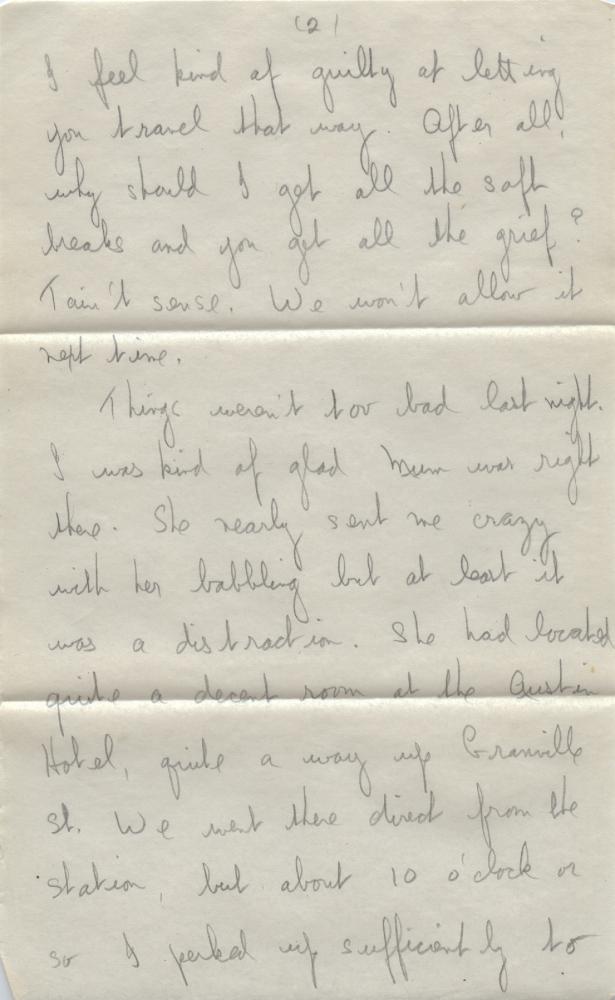 (2)
I feel kind of guilty at letting
you travel that way. After all,
why should I get all the soft
breaks and you get all the grief?
Tain't sense. We won't allow it
next time.
Things weren't too bad last night.
I was kind of glad Mum was right
there. She nearly sent me crazy
with her babbling but at least it
was a distraction. She had located
quite a decent room at the Austin
Hotel, quite a way up Granville
St. We went there direct from the
station, but about 10 o'clock or
so I perked up sufficiently to